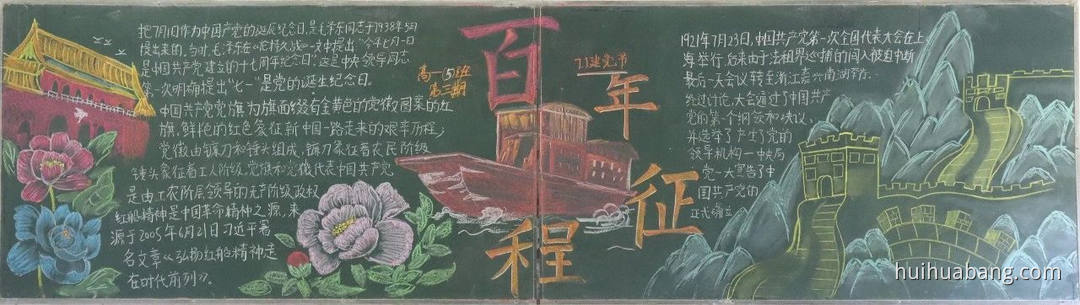 把7月1日作为中国产党的诞辰纪念日,是毛泽东同志于1938年5月
提出来的。当时,毛泽东在《论持久战》一文中提出:"今年七月一日
是中国共产党建立的十七周年纪念日"这是中央领导同志
第一次明确提出"七一"是党的诞生纪念日。
中国共产党党旗为旗面缀有金黄色的党徽图案的红
旗,鲜艳的红色象征新中国一路走来的艰辛历程,
党徽由镰刀和锤头组成,镰刀象征着农民阶级
锤头象征着工人阶级,党旗和党徽代表中国共产党
是由工农阶层领导的无产阶级政权
红船精神是中国革命精神之源,来
源于2005年6月21日习近平署
名文章《弘扬红船精神走
在时代前列》。
高一(5)班
第三期
百
年
征
程
7.1建党节
1921年7月23日,中国共产党第一次全国代表大会在上
海举行,后来由于法租界巡捕的闯入被迫中断
最后一天会议转至浙江嘉兴南湖举行.
经过讨论,大会通过了中国共产
党的第一个纲领和决议,
并选举了产生了党的
领导机构—中央局
党一大宣告了中
国共产党的
正式成立
huihuabang.com